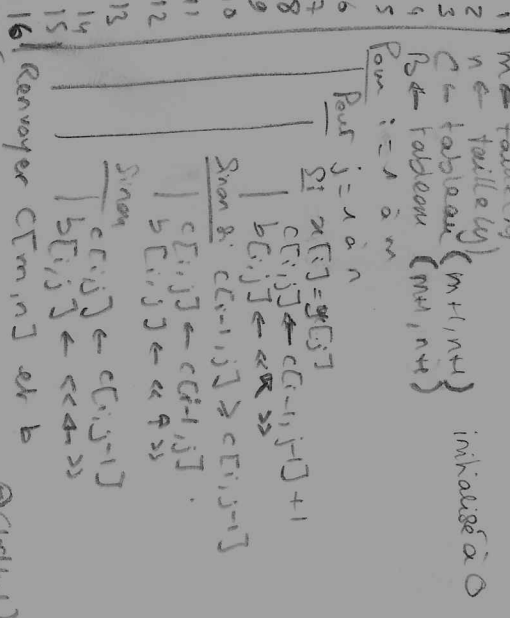 1 m ← taille(x)
2 n ← taille(y)
3 C ← tableau (m+1, n+1) initialisé à 0
4 B ← tableau (m+1, n+1)
5 Pour i = 1 à m
6 Pour j = 1 à n
7 Si x[i] = y[j]
8 c[i,j] ← c[i-1, j-1] + 1
9 b[i,j] ← « ↖ »
10 Sinon si c[i-1, j] ≥ c[i, j-1]
11 c[i,j] ← c[i-1, j]
12 b[i,j] ← « ↑ »
13 Sinon
14 c[i,j] ← c[i, j-1]
15 b[i,j] ← « ← »
16 Renvoyer C[m,n] et b